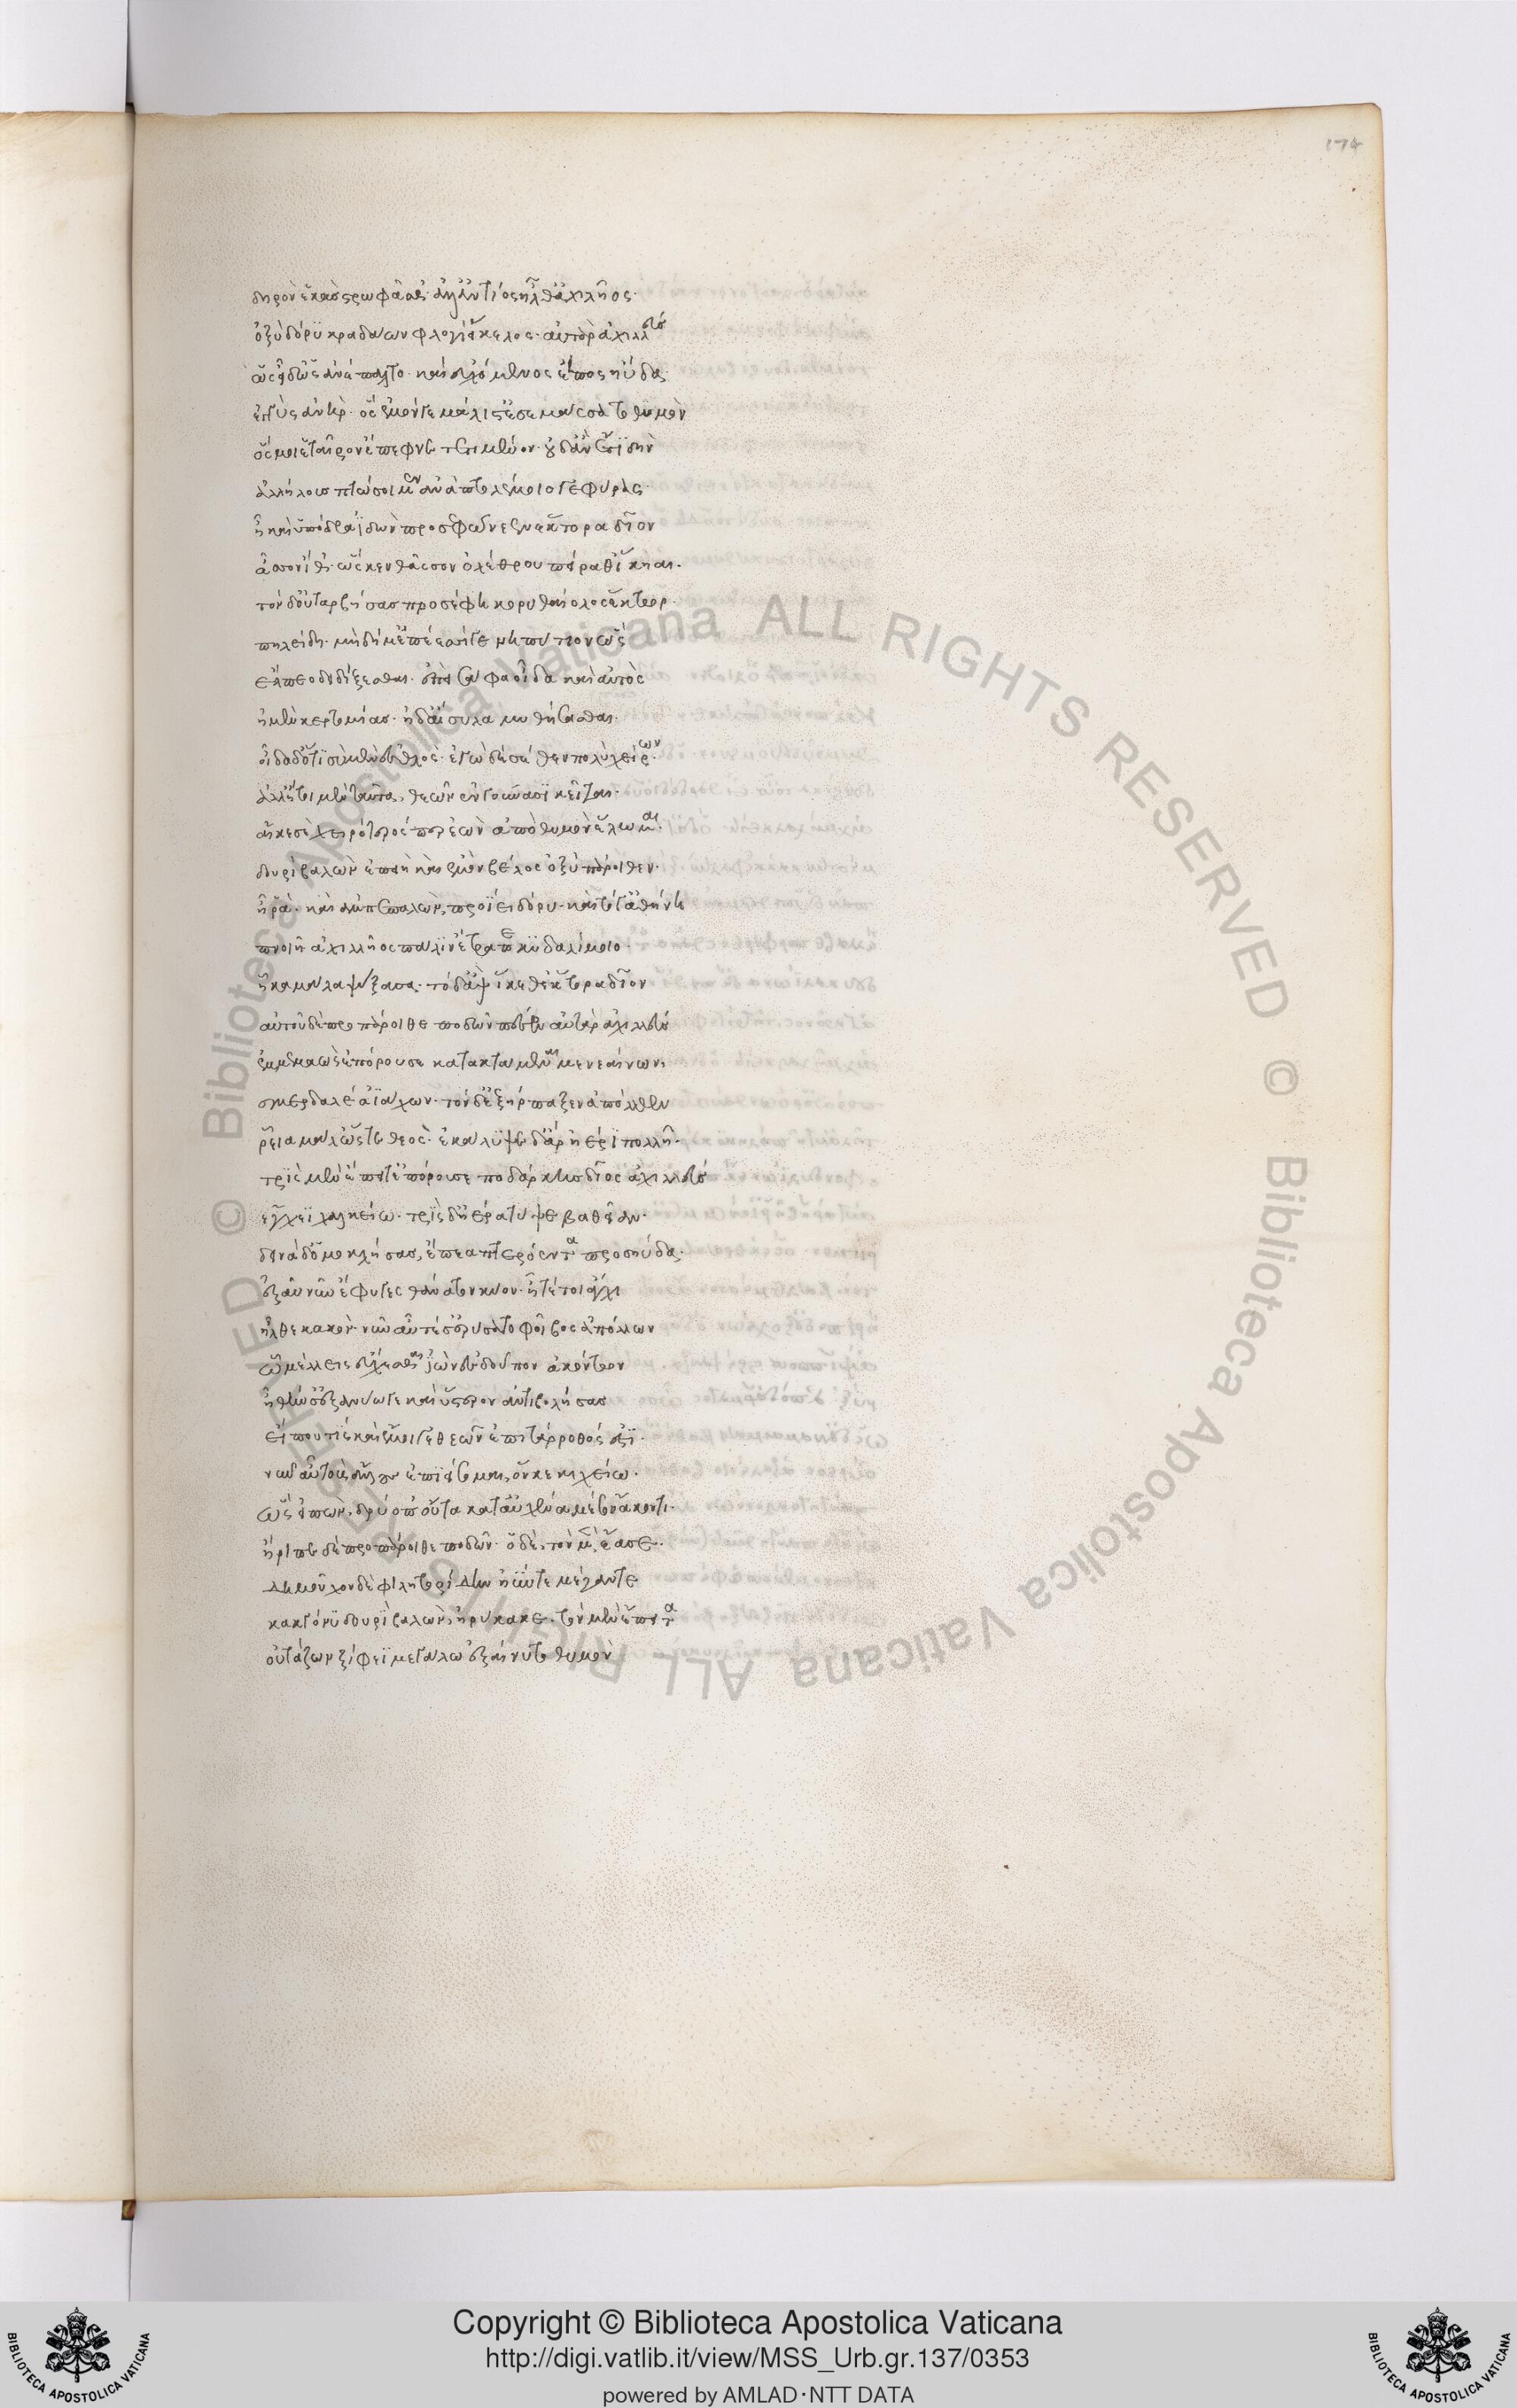 174
δηρὸν ἑκὰς στρωφᾶσθ'· ἀλλ' ἀντίος ἦλθ' ἀχιλῆος·
ὀξὺ δόρυ κραδάων φλογὶ εἴκελος· αὐτὰρ ἀχιλλεὺς
ὡς εἶδ' ὡς ἀνέπαλτο· καὶ εὐχόμενος ἔπος ηὔδα·
ἐγγὺς ἀνὴρ· ὃς ἐμόν γε μάλιστ' ἐσεμάσσατο θυμὸν
ὅς μοι ἑταῖρον ἔπεφνε τετιμένον· οὐδ' ἂν ἔτι δὴν
ἀλλήλους πτώσοιμεν ἀνὰ πτολέμοιο γεφύρας·
ἦ καὶ ὑπόδρα ἰδὼν προσεφώνεεν ἕκτορα δῖον
ἆσσον ἴθ'· ὥς κεν θᾶσσον ὀλέθρου πείραθ' ἵκηαι·
τὸν δ' οὐ ταρβήσας προσέφη κορυθαίολος ἕκτωρ·
πηλείδη· μὴ δή μ' ἐπέεσσί γε νηπύτιον ὣς
ἔλπεο δειδίξεσθαι· ἐπεὶ σάφα οἶδα καὶ αὐτὸς
ἠμὲν κερτομίας· ἠδ' αἴσυλα μυθήσασθαι·
οἶδα δ' ὅτι σὺ μὲν ἐσθλὸς· ἐγὼ δὲ σέθεν πολὺ χείρων·
ἀλλ' ἤτοι μὲν ταῦτα, θεῶν ἐν γούνασι κεῖται·
αἴ κέ σε χειρότερός περ ἐὼν ἀπὸ θυμὸν ἕλωμαι·
δουρὶ βαλὼν· ἐπειὴ καὶ ἐμὸν βέλος ὀξὺ πάροιθεν·
ἦ ῥα· καὶ ἀμπεπαλὼν, προΐει δόρυ· καὶ τόγ' ἀθήνη
πνοιῇ ἀχιλλῆος πάλιν ἔτραπε κυδαλίμοιο·
ἧκα μάλα ψύξασα· τὸ δ' ἂψ ἵκεθ' ἕκτορα δῖον
αὐτοῦ δὲ προπάροιθε ποδῶν πέσεν· αὐτὰρ ἀχιλλεὺς
ἐμμεμαὼς ἐπόρουσε κατακτάμεναι μενεαίνων,
σμερδαλέα ἰάχων· τὸν δ' ἐξήρπαξεν ἀπόλλων
ῥεῖα μάλ' ὥστε θεὸς· ἐκάλυψε δ' ἄρ' ἠέρι πολλῇ·
τρὶς μὲν ἔπειτ' ἐπόρουσε ποδάρκης δῖος ἀχιλλεὺς
ἔγχεϊ χαλκείω· τρὶς δ' ἠέρα τύψε βαθεῖαν·
δεινὰ δ' ὁμοκλήσας, ἔπεα πτερόεντα προσηύδα·
ἐξ αὖ νῦν ἔφυγες θάνατον κύον· ἦ τέ τοι ἄγχι
ἦλθε κακὸν· νῦν αὖτέ σ' ἐρύσατο φοῖβος ἀπόλλων
ᾧ μέλλεις εὔχεσθαι ἰὼν ἐς δοῦπον ἀκόντων
ἦ θήν σ' ἐξανύω γε καὶ ὕστερον ἀντιβολήσας
εἴ πού τις καὶ ἔμοιγε θεῶν ἐπιτάρροθός ἐστι·
νῦν αὖ τοὺς ἄλλους ἐπιείσομαι, ὅν κε κιχείω·
ὣς εἰπὼν, δρύοπ' οὖτα κατ' αὐχένα μέσον ἄκοντι·
ἤριπε δὲ προπάροιθε ποδῶν· ὃ δὲ, τὸν μὲν ἔασε·
δημοῦχον δὲ φιλητορίδην ἠΰν τε μέγαν τε
κὰκ γόνυ δουρὶ βαλὼν, ἠρύκακε· τὸν μὲν ἔπειτα
οὐτάζων ξίφεϊ μεγάλω ἐξαίνυτο θυμὸν
Copyright © Biblioteca Apostolica Vaticana
http://digi.vatlib.it/view/MSS_Urb.gr.137/0353
powered by AMLAD·NTT DATA